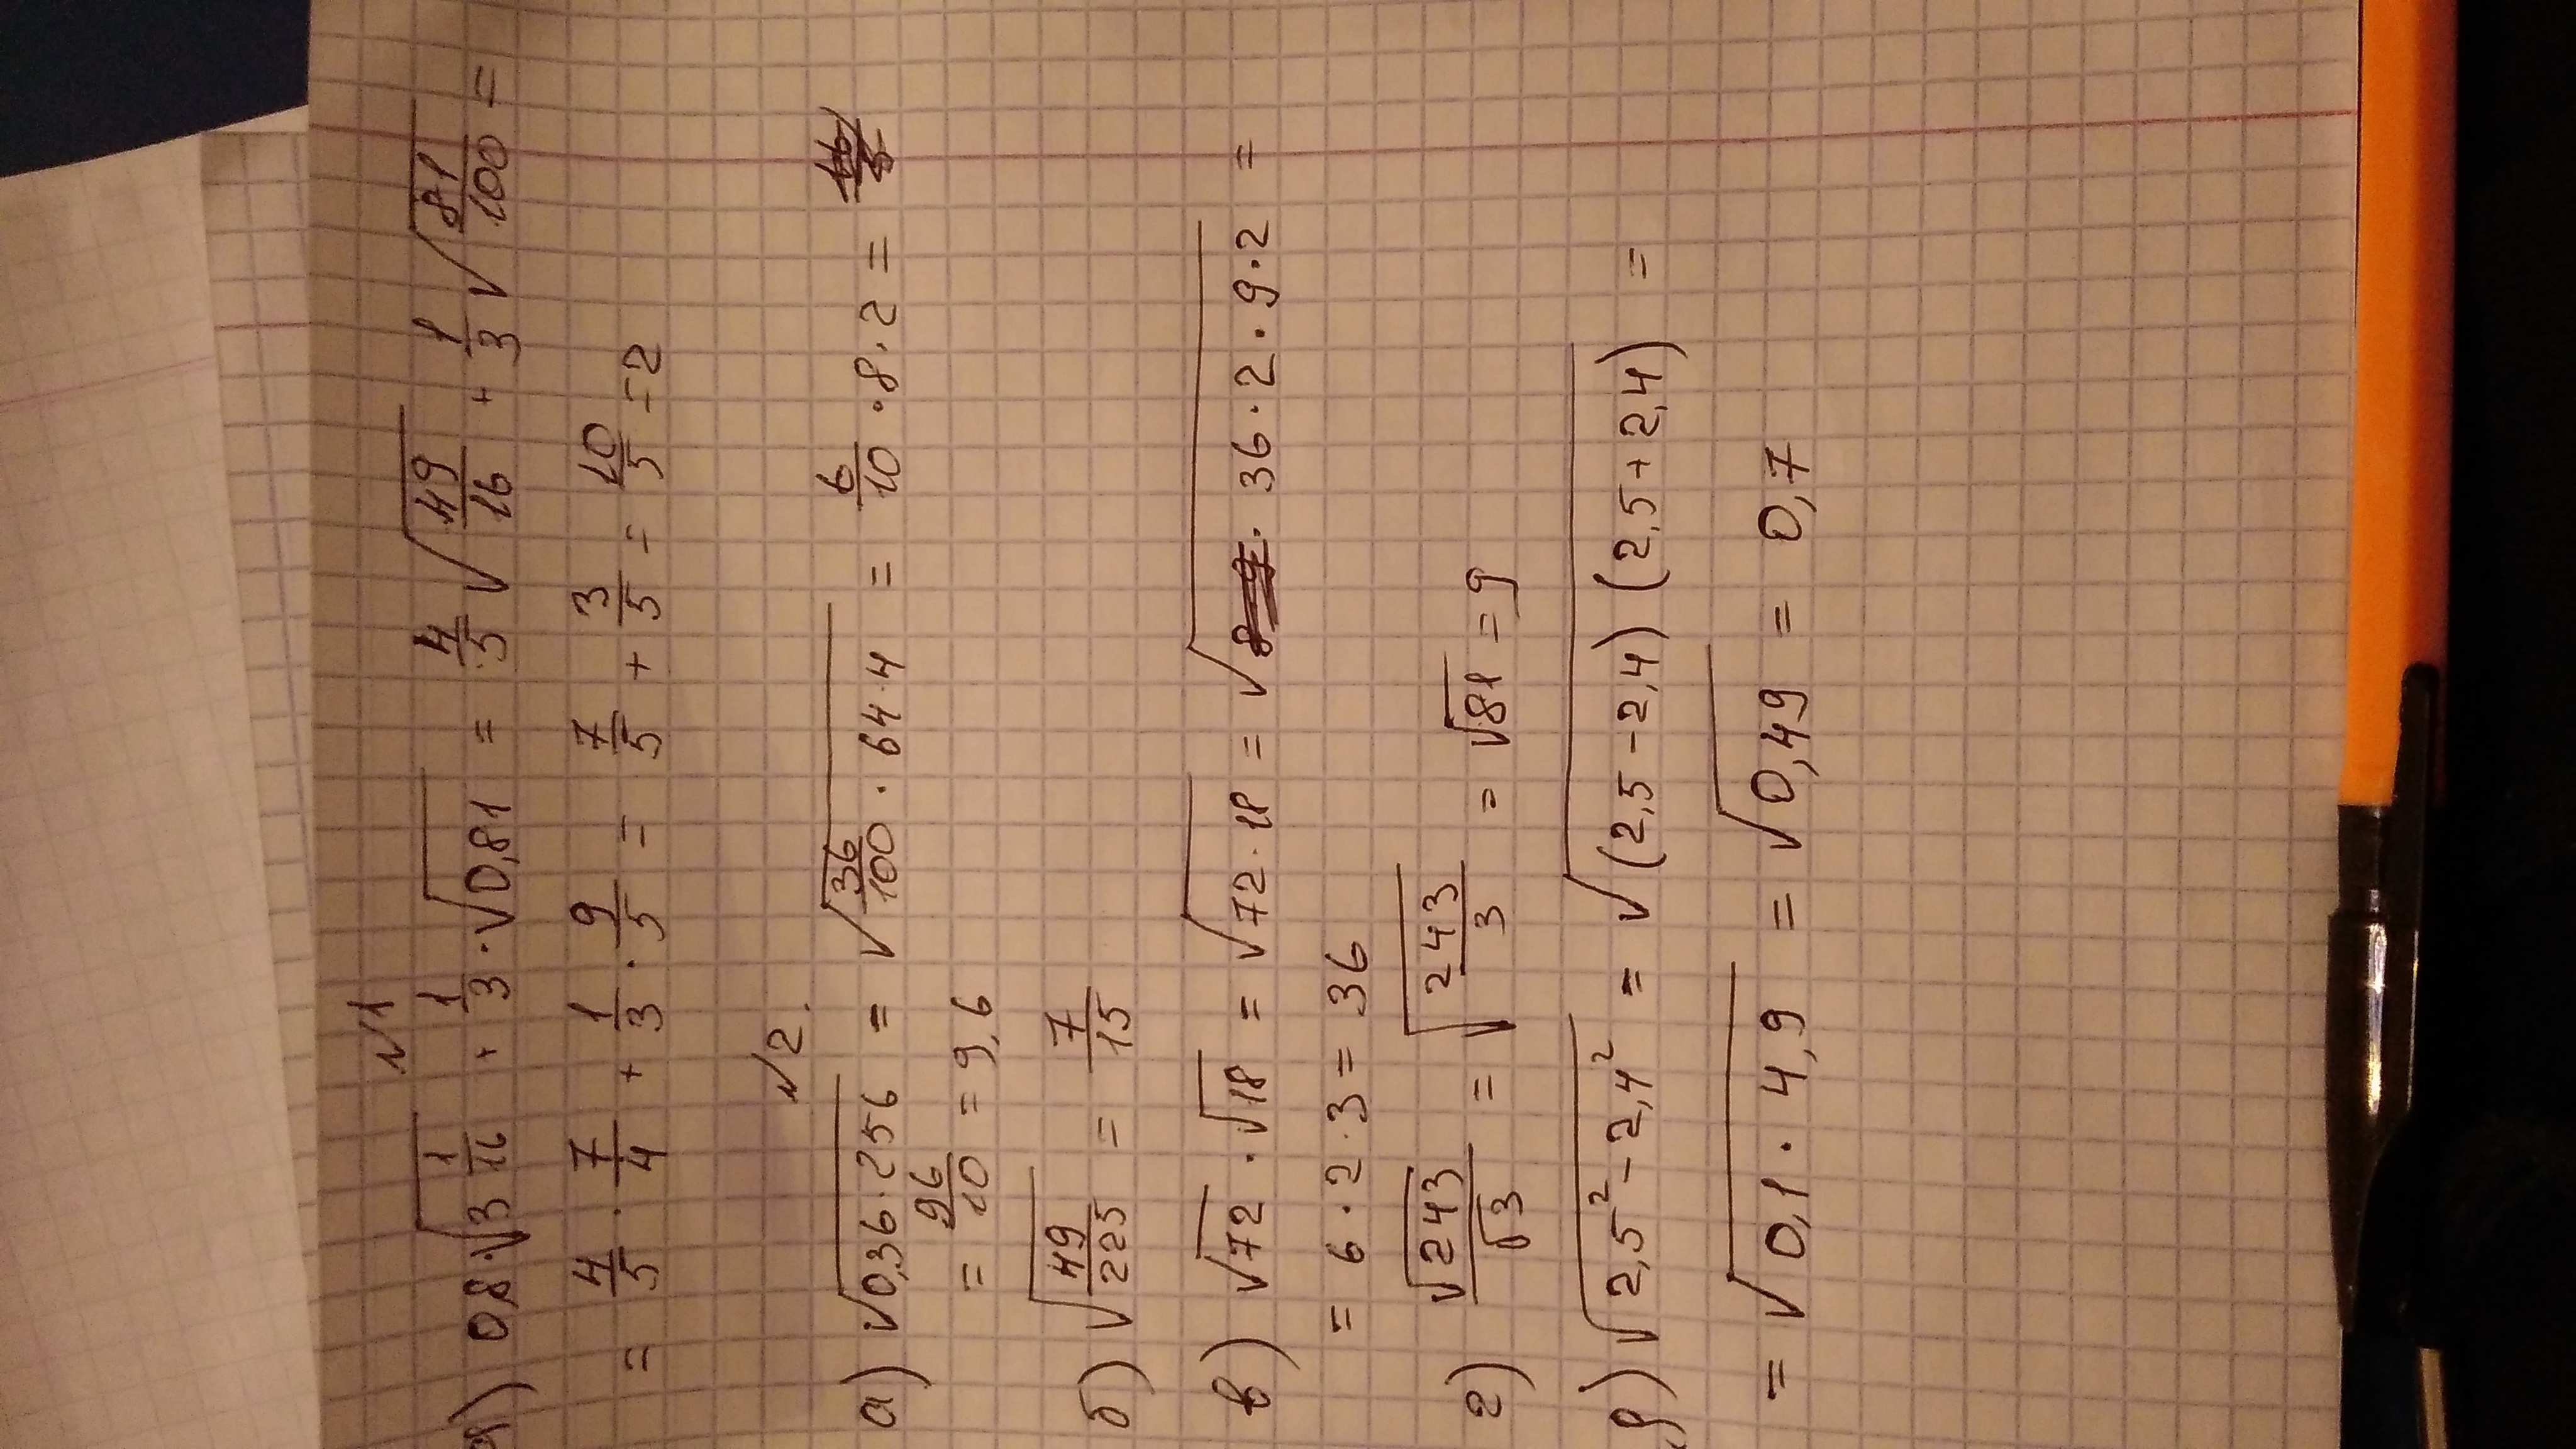 №1
а) 0,8·√(3 1/16) + 1/3·√0,81 = 4/5 √(49/16) + 1/3 √(81/100) =
= 4/5 · 7/4 + 1/3 · 9/5 = 7/5 + 3/5 = 10/5 = 2
№2.
а) √(0,36·256) = √(36/100 · 64·4) = 6/10 · 8·2 =
= 96/10 = 9,6
б) √(49/225) = 7/15
в) √72 · √18 = √(72·18) = √(36·2·9·2) =
= 6·2·3 = 36
г) √243/√3 = √(243/3) = √81 = 9
д) √(2,5² - 2,4²) = √((2,5-2,4)(2,5+2,4)) =
= √(0,1 · 4,9) = √0,49 = 0,7